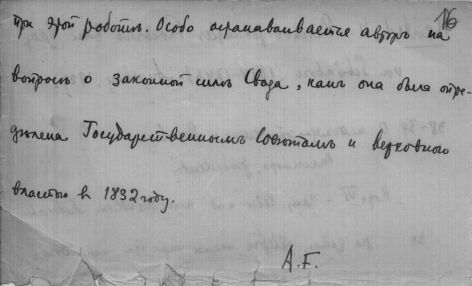 16
при этой работѣ. Особо останавливается авторъ на
вопросѣ о законной силѣ Свода, какъ она была опре-
дѣлена Государственнымъ Совѣтомъ и верховною
властью в 1832 году.
А.Г.